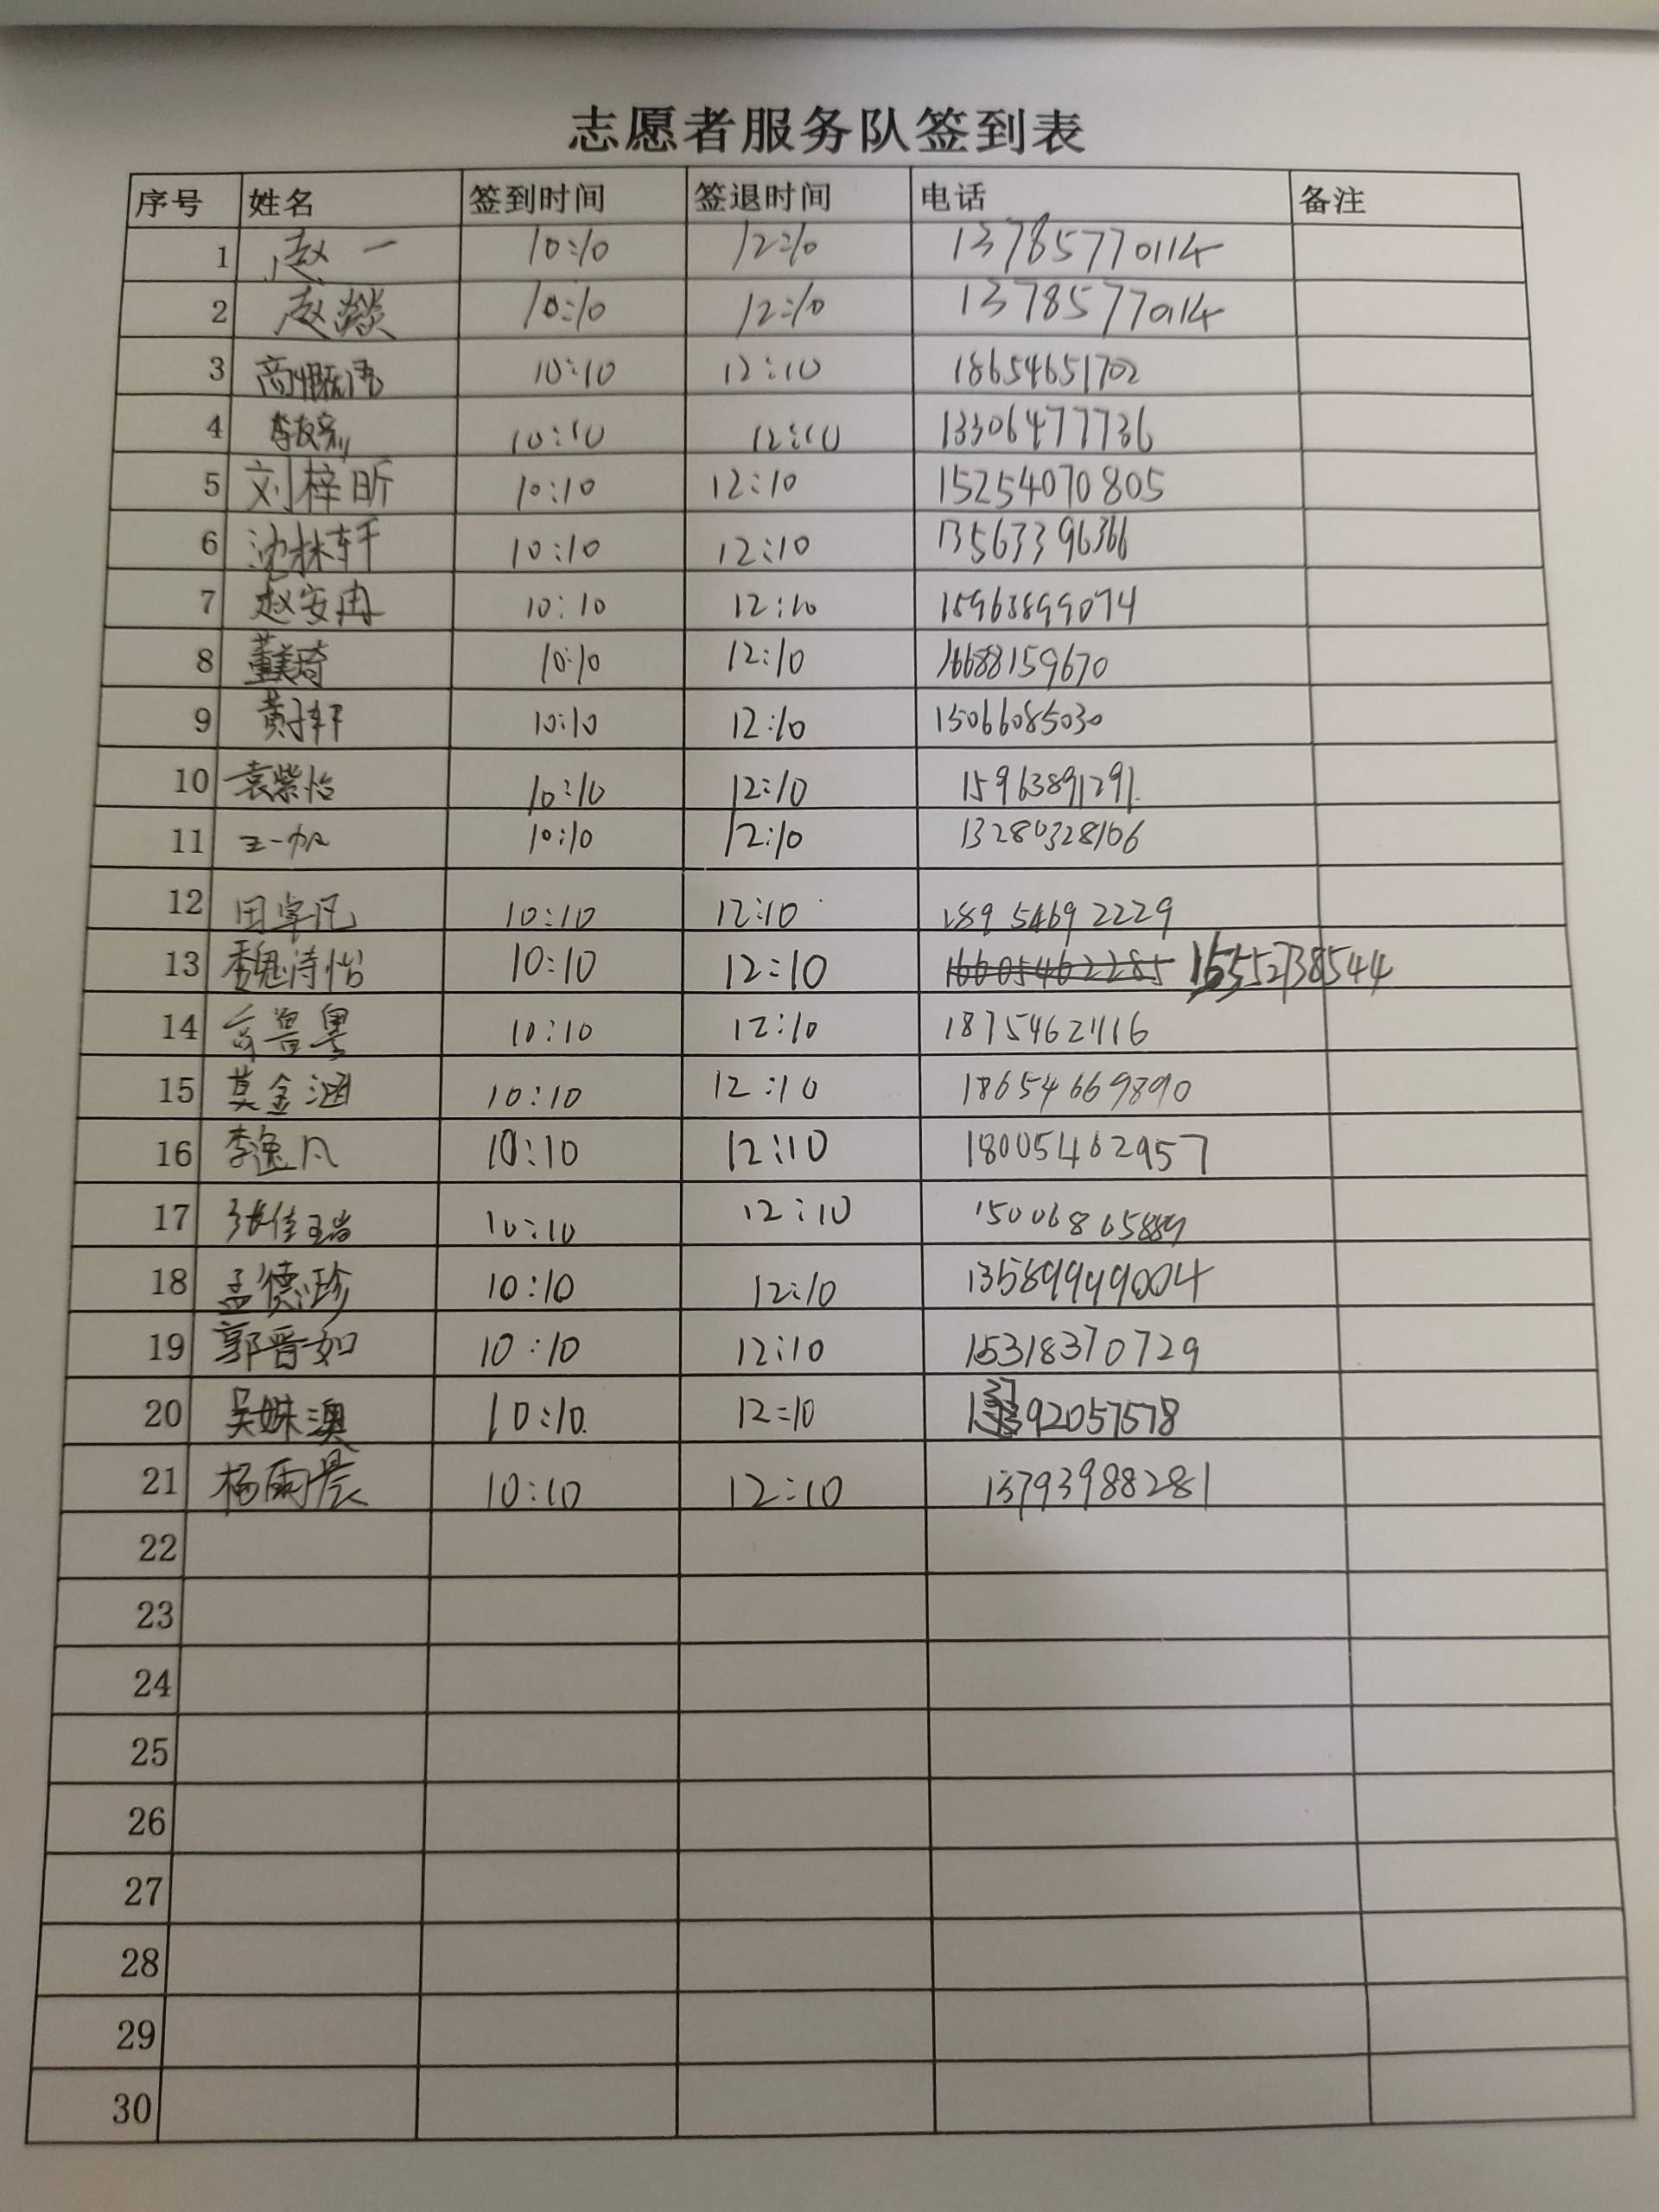 志愿者服务队签到表
序号 姓名 签到时间 签退时间 电话 备注
1 赵一 10:10 12:10 13785770114
2 赵燚 10:10 12:10 13785770114
3 商慨 10:10 12:10 18654651702
4 李 10:10 12:10 13306477736
5 刘梓昕 10:10 12:10 15254070805
6 沈林轩 10:10 12:10 13563396366
7 赵安冉 10:10 12:10 15963899074
8 董美琦 10:10 12:10 16688159670
9 黄子轩 10:10 12:10 15066085030
10 袁紫怡 10:10 12:10 15963891291
11 王一帆 10:10 12:10 13280328106
12 田宇凡 10:10 12:10 18954692229
13 魏诗怡 10:10 12:10 16605462285 15552738544
14 鲁粤 10:10 12:10 18754621116
15 莫金涵 10:10 12:10 18654669890
16 李逸凡 10:10 12:10 18005462957
17 张佳瑞 10:10 12:10
18 孟德珍 10:10 12:10 13589949004
19 郭晋如 10:10 12:10 15318370729
20 吴姝澳 10:10 12:10 13792057578
21 杨雨晨 10:10 12:10 13793988281
22
23
24
25
26
27
28
29
30